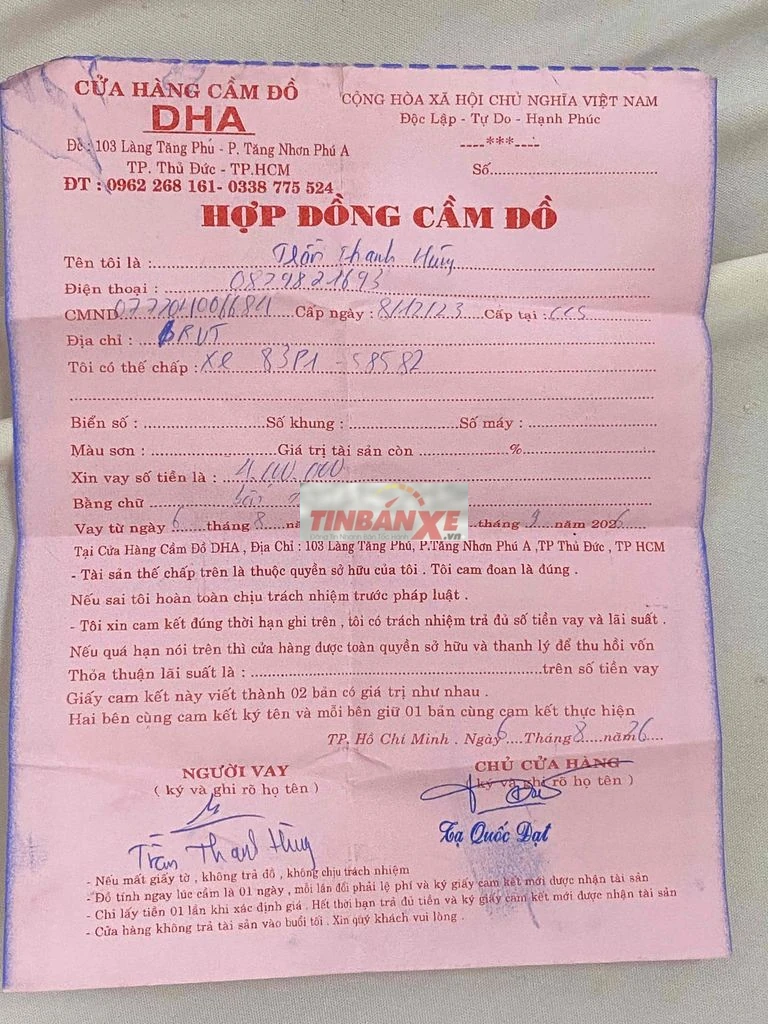 CỬA HÀNG CẦM ĐỒ
DHA
Đc : 103 Làng Tăng Phú - P. Tăng Nhơn Phú A
TP. Thủ Đức - TP.HCM
ĐT : 0962 268 161- 0338 775 524
CỘNG HÒA XÃ HỘI CHỦ NGHĨA VIỆT NAM
Độc Lập - Tự Do - Hạnh Phúc
----***----
Số
HỢP ĐỒNG CẦM ĐỒ
Tên tôi là : Trần Thanh Hùng
Điện thoại : 0879821693
CMND Cấp ngày : 8/12/23 Cấp tại : CCS
Địa chỉ : BRVT
Tôi có thế chấp : Xe 83P1 - 58582
Biển số : Số khung : Số máy :
Màu sơn : Giá trị tài sản còn %
Xin vay số tiền là : 4.000.000
Bằng chữ
Vay từ ngày 6 tháng 8 tháng 9 năm 2026
TINBANXE.vn
Tại Cửa Hàng Cầm Đồ DHA , Địa Chỉ : 103 Làng Tăng Phú, P.Tăng Nhơn Phú A ,TP Thủ Đức , TP HCM
- Tài sản thế chấp trên là thuộc quyền sở hữu của tôi . Tôi cam đoan là đúng .
Nếu sai tôi hoàn toàn chịu trách nhiệm trước pháp luật .
- Tôi xin cam kết đúng thời hạn ghi trên , tôi có trách nhiệm trả đủ số tiền vay và lãi suất .
Nếu quá hạn nói trên thì cửa hàng được toàn quyền sở hữu và thanh lý để thu hồi vốn
Thỏa thuận lãi suất là : trên số tiền vay
Giấy cam kết này viết thành 02 bản có giá trị như nhau .
Hai bên cùng cam kết ký tên và mỗi bên giữ 01 bản cùng cam kết thực hiện
TP. Hồ Chí Minh . Ngày 6 Tháng 8 năm 26
NGƯỜI VAY
( ký và ghi rõ họ tên )
Trần Thanh Hùng
CHỦ CỬA HÀNG
(ký và ghi rõ họ tên )
Tạ Quốc Đạt
- Nếu mất giấy tờ , không trả đồ , không chịu trách nhiệm
- Đồ tính ngay lúc cầm là 01 ngày , mỗi lần đổi phải lệ phí và ký giấy cam kết mới được nhận tài sản
- Chỉ lấy tiền 01 lần khi xác định giá . Hết thời hạn trả đủ tiền và ký giấy cam kết mới được nhận tài sản
- Cửa hàng không trả tài sản vào buổi tối . Xin quý khách vui lòng .